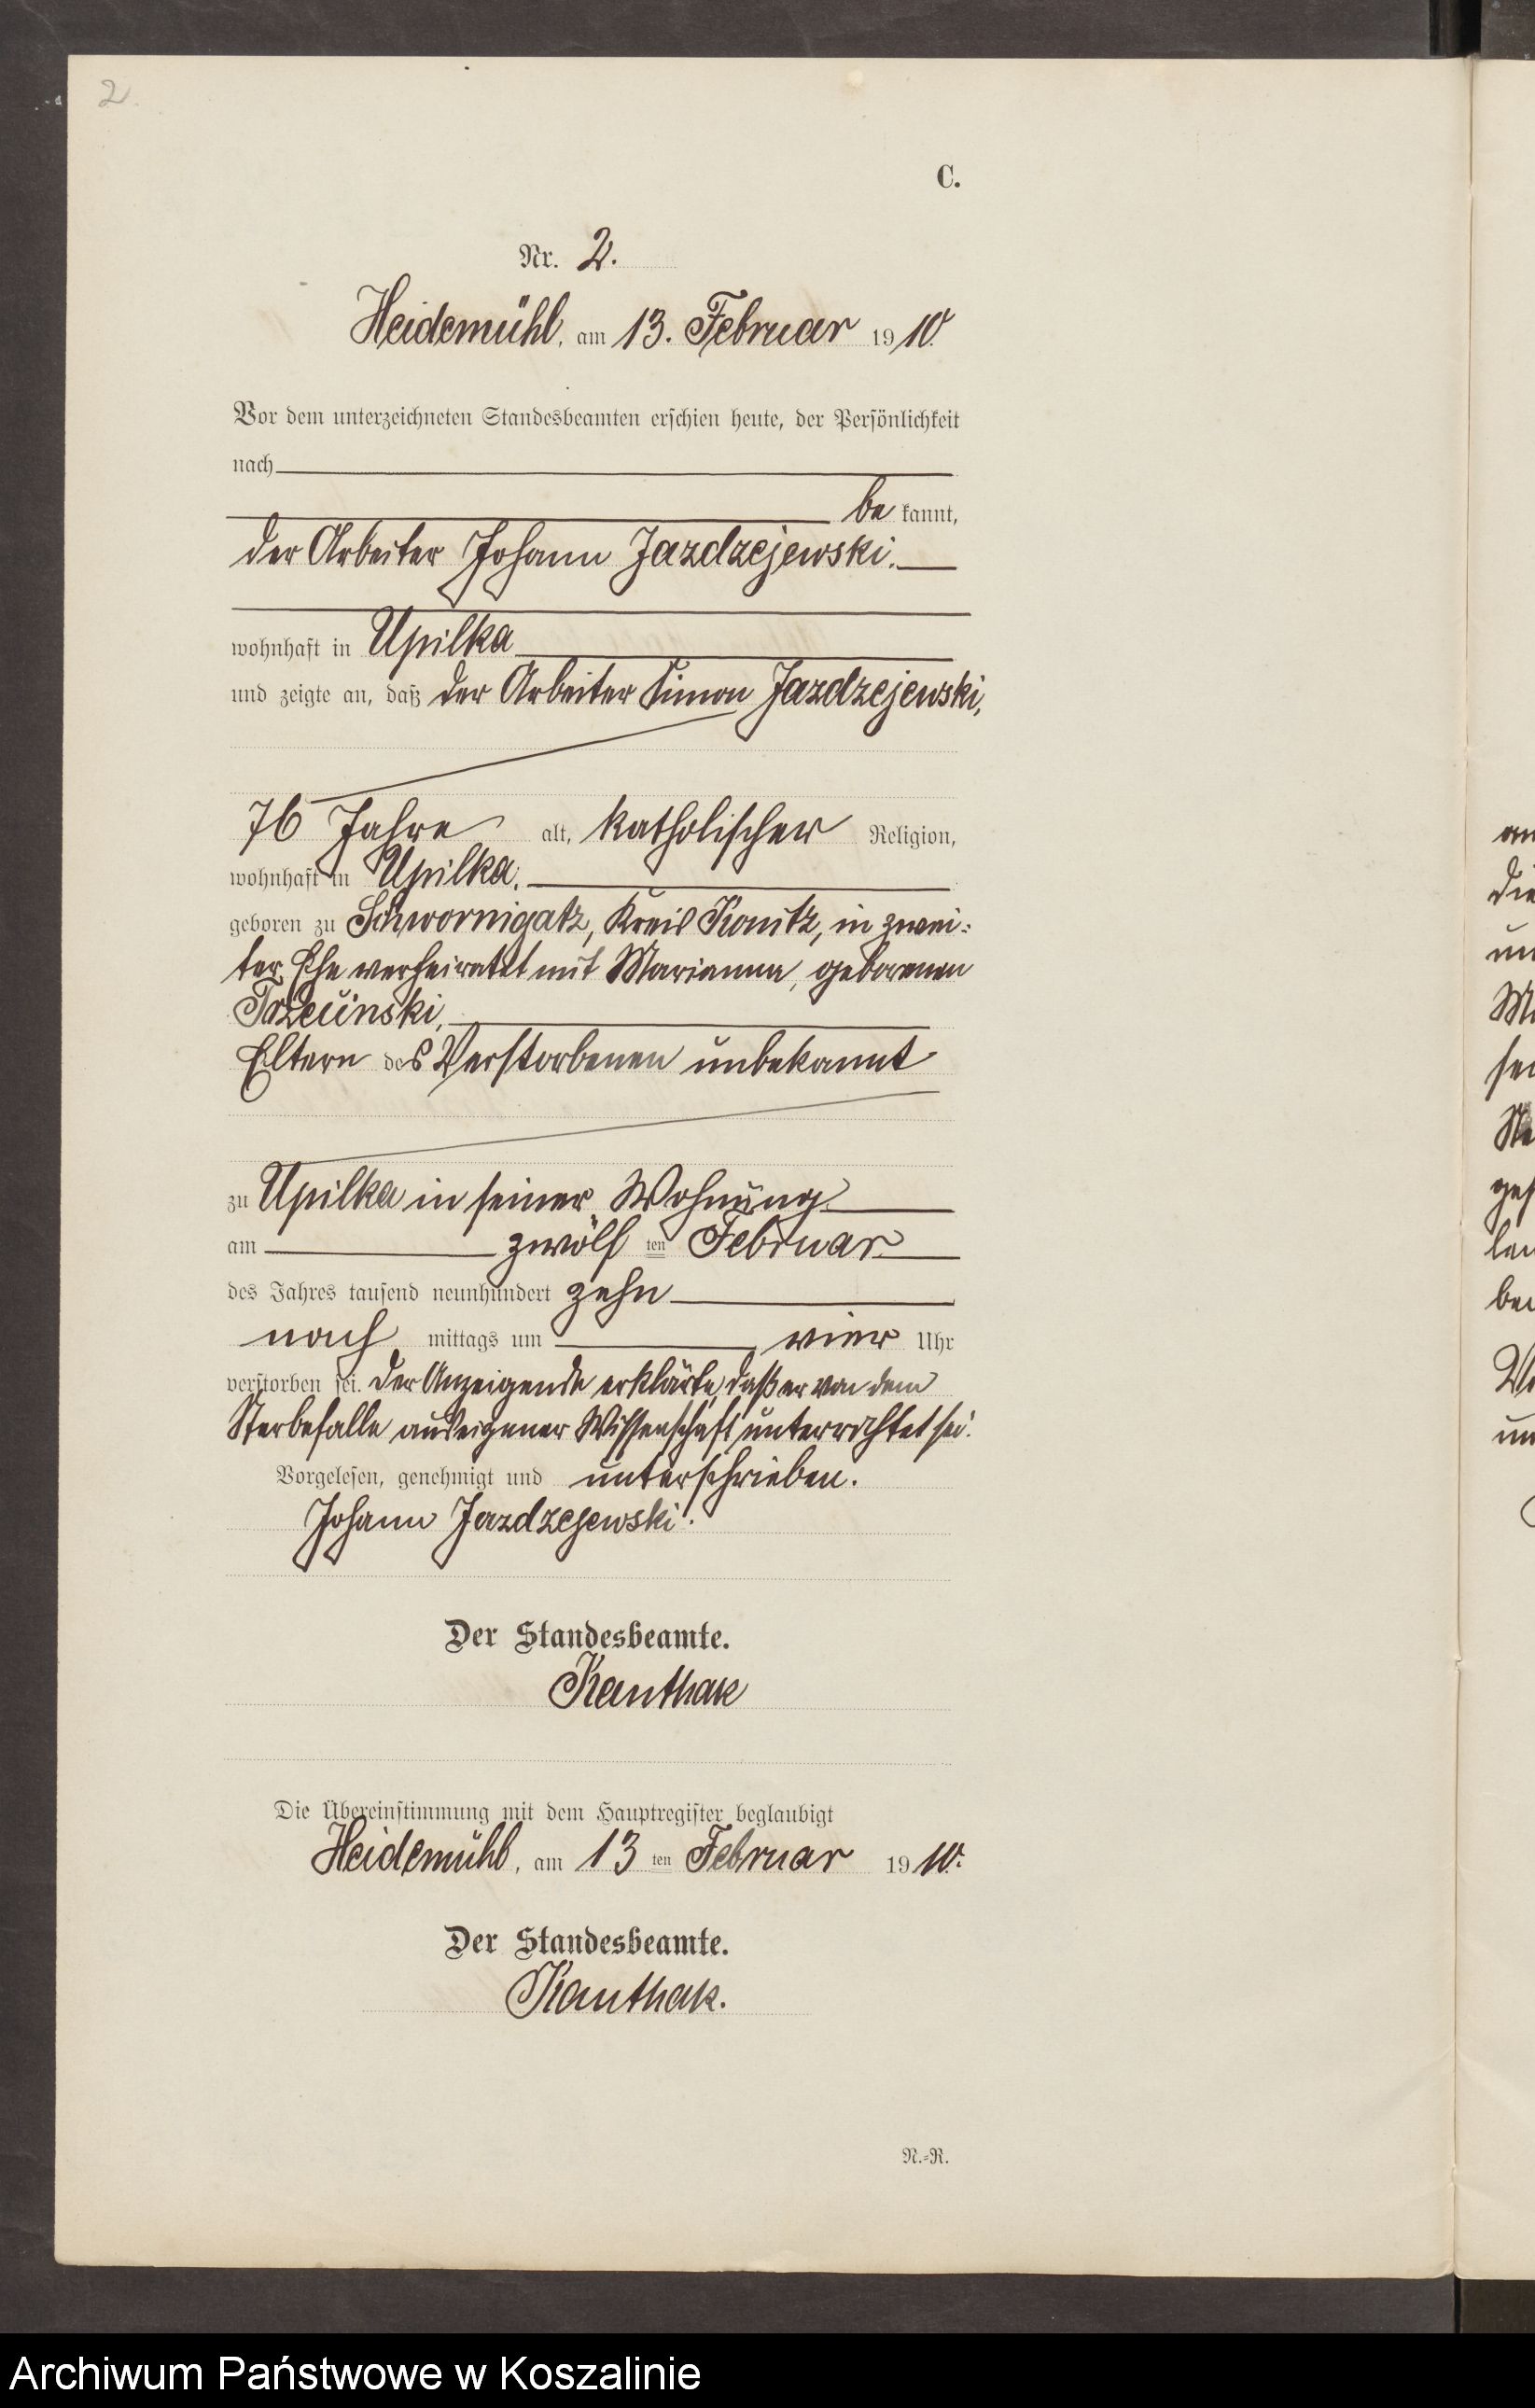 2.
C.
Nr. 2.
Heidemühl, am 13. Februar 1910.
Vor dem unterzeichneten Standesbeamten erschien heute, der Persönlichkeit
nach
be kannt,
der Arbeiter Johann Jazdzejewski.
wohnhaft in Upilka
und zeigte an, daß der Arbeiter Simon Jazdzejewski,
76 Jahre alt, katholischer Religion,
wohnhaft in Upilka,
geboren zu Schwornigatz, Kreis Konitz, in zwei-
ter Ehe verheiratet mit Marianna, geborenen
Eltern des Verstorbenen unbekannt
zu Upilka in seiner Wohnung
am zwölf ten Februar
des Jahres tausend neunhundert zehn
nach mittags um vier Uhr
verstorben sei. Der Anzeigende erklärte, daß er von dem
Sterbefalle aus eigener Wissenschaft unterrichtet sei.
Vorgelesen, genehmigt und unterschrieben.
Johann Jazdzejewski.
Der Standesbeamte.
Kanthak
Die Übereinstimmung mit dem Hauptregister beglaubigt
Heidemühl, am 13 ten Februar 1910.
Der Standesbeamte.
Kanthak.
N.-R.
an
die
un
sei
bei
un
Archiwum Państwowe w Koszalinie